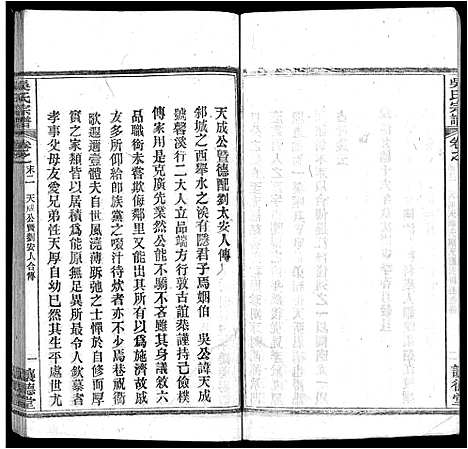 吳氏宗譜
卷之
讓德堂
天成公暨德配劉太安人傳
邾城之西舉水之涘有隱君子焉姻伯　吳公諱天成
號馨溪行二大人立品端方行敦古誼恭謹持己儉樸
傳家用是克廣先業然公能不驕不吝雖其身議敘六
品職銜未嘗欺侮鄰里又能出其所有以為施濟故戚
友多所仰給即族黨之啜汁待炊者亦不少焉巷祝衢
歌遐邇壹體夫自世風澆薄跅弛之士憚於自求而殷
實之家類皆以居積為能原無足異所最令人欽慕者
孝事父母友愛兄弟性天厚自幼已然其生平處世尤
吳氏宗譜
卷之末二　天成公暨劉安人合傳
一　讓德堂